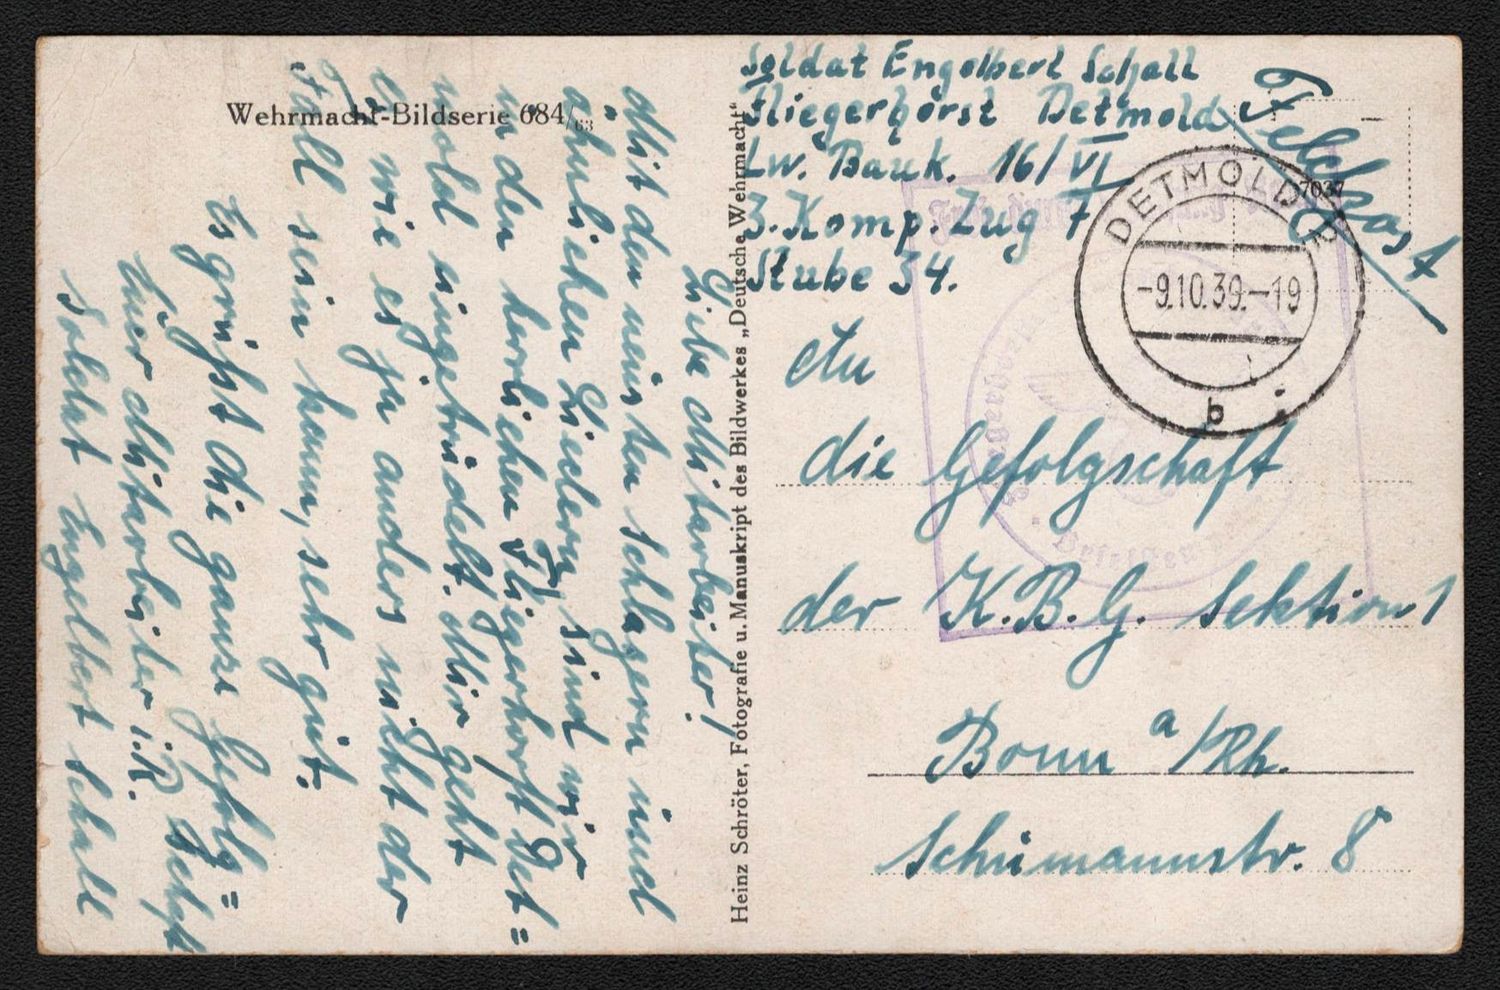 Wehrmacht-Bildserie 684/63
Liebe Mitarbeiter!
Mit den neusten Schlagern und
ähnlichen Liedern, sind wir
in den herrlichen Fliegerhorst Det=
mold eingetrudelt. Mir geht
es wie es ja anders nicht der
Fall sein kann, sehr gut.
Es grüßt die ganze Gefolg=
schaft
Euer Mitarbeiter i.R.
Soldat Engelbert Schall
Heinz Schröter, Fotografie u. Manuskript des Bildwerkes „Deutsche Wehrmacht“
Soldat Engelbert Schall
Fliegerhorst Detmold
Lw. Bauk. 16/VI
3. Komp. Zug 7
Stube 34.
Feldpost
7037
DETMOLD 2
-9.10.39.-19
b
An
die Gefolgschaft
der K.B.G. Sektion 1
Bonn a/Rh.
Schumannstr. 8